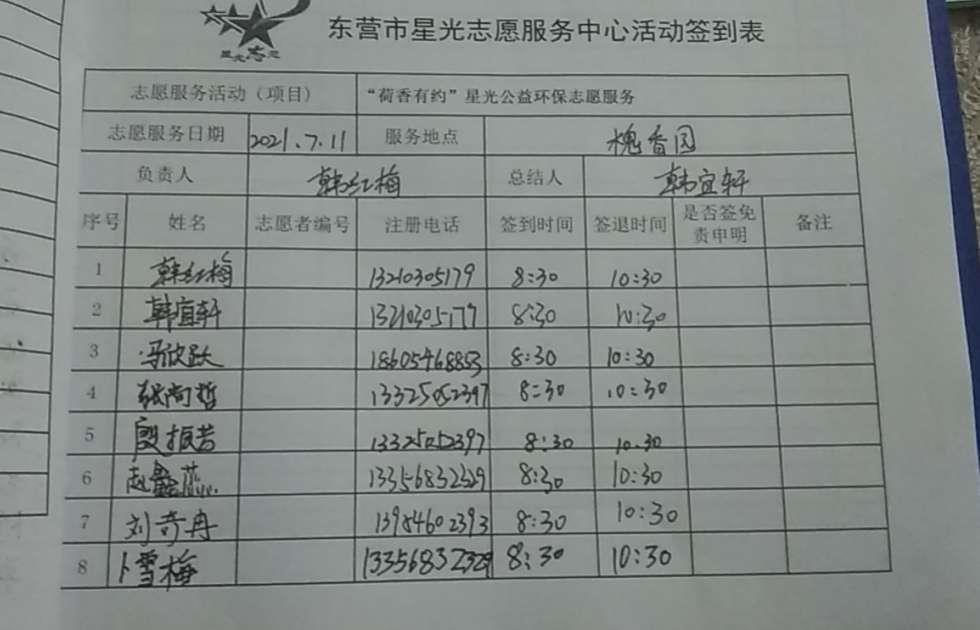 星光志愿
东营市星光志愿服务中心活动签到表
志愿服务活动（项目） “荷香有约”星光公益环保志愿服务
志愿服务日期 2021.7.11 服务地点 槐香园
负责人 韩红梅 总结人 韩宜轩
序号 姓名 志愿者编号 注册电话 签到时间 签退时间 是否签免责申明 备注
1 韩红梅 13210305179 8:30 10:30
2 韩宜轩 13210305177 8:30 10:30
3 马欣跃 18605468853 8:30 10:30
4 张尚哲 13325052397 8:30 10:30
5 殷振芸 13325052397 8:30 10.30
6 赵鑫蕊 13356832329 8:30 10:30
7 刘奇冉 13984602393 8:30 10:30
8 卜雪梅 13356832329 8:30 10:30